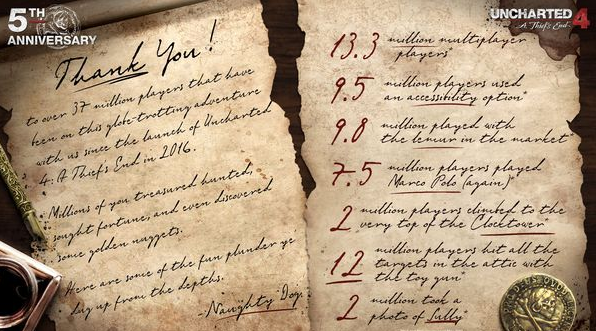 5TH
ANNIVERSARY
UNCHARTED 4
A Thief's End
Thank You!
to over 37 million players that have
been on this globe-trotting adventure
with us since the launch of Uncharted
4: A Thief's End in 2016.
Millions of you treasured hunted,
sought fortune, and even discovered
some golden nuggets.
Here are some of the fun plunder ye
dug up from the depths.
- Naughty Dog.
13.3 million multiplayer
players*
9.5 million players used
an accessibility option*
9.8 million played with
the lemur in the market*
7.5 million players played
Marco Polo (again)*
2 million players climbed to the
very top of the Clocktower*
12 million players hit all the
targets in the attic with
the toy gun*
2 million took a
photo of Sully*